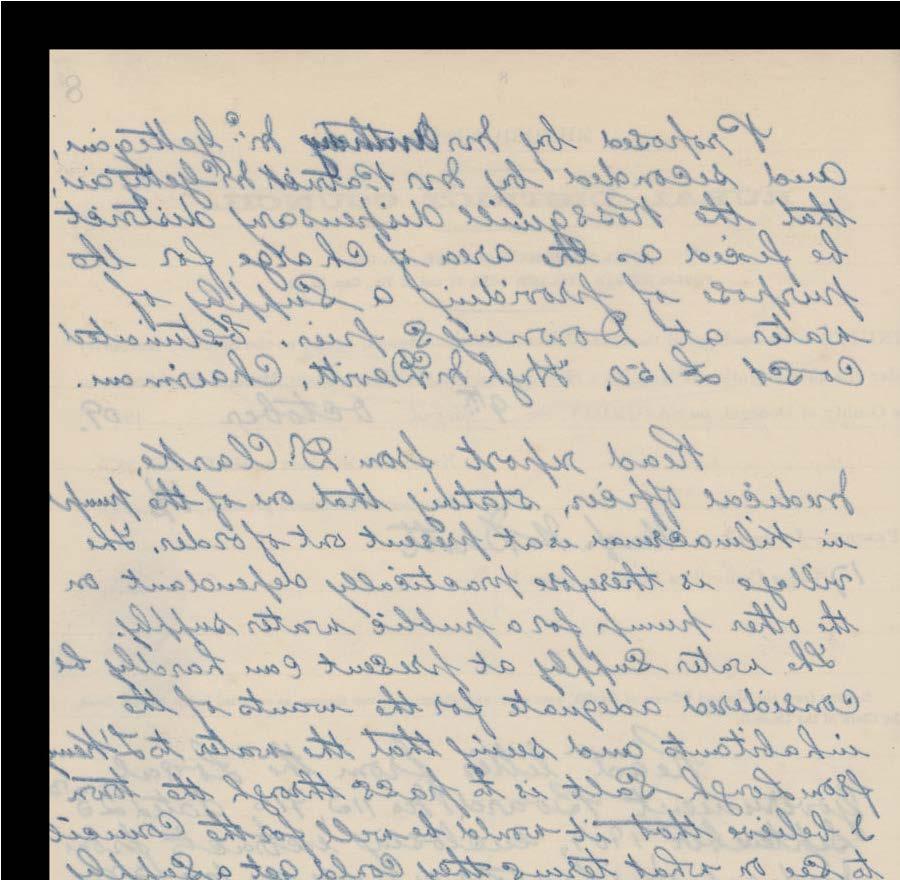 8
Proposed by Mr Anthony McGettigan,
and seconded by Mr Patrick McGettigan,
that the Rossguill dispensary district
be fixed as the area of Charge, for the
purpose of providing a Supply of
water at Downies pier. Estimated
Cost £150. Hugh McDevitt, Chairman.
9th October 09.
Read report from Dr. Clarke,
medical Officer, stating that one of the pumps
in Kilmacrenan is at present out of order. The
village is therefore practically dependant on
the other pump for a public water supply.
The water Supply at present can hardly be
Considered adequate for the wants of the
inhabitants and seeing that the water to L'Kenny
from Lough Salt is to pass through the town
I believe that it would be well for the Council
to see on what terms they Could get a Supply